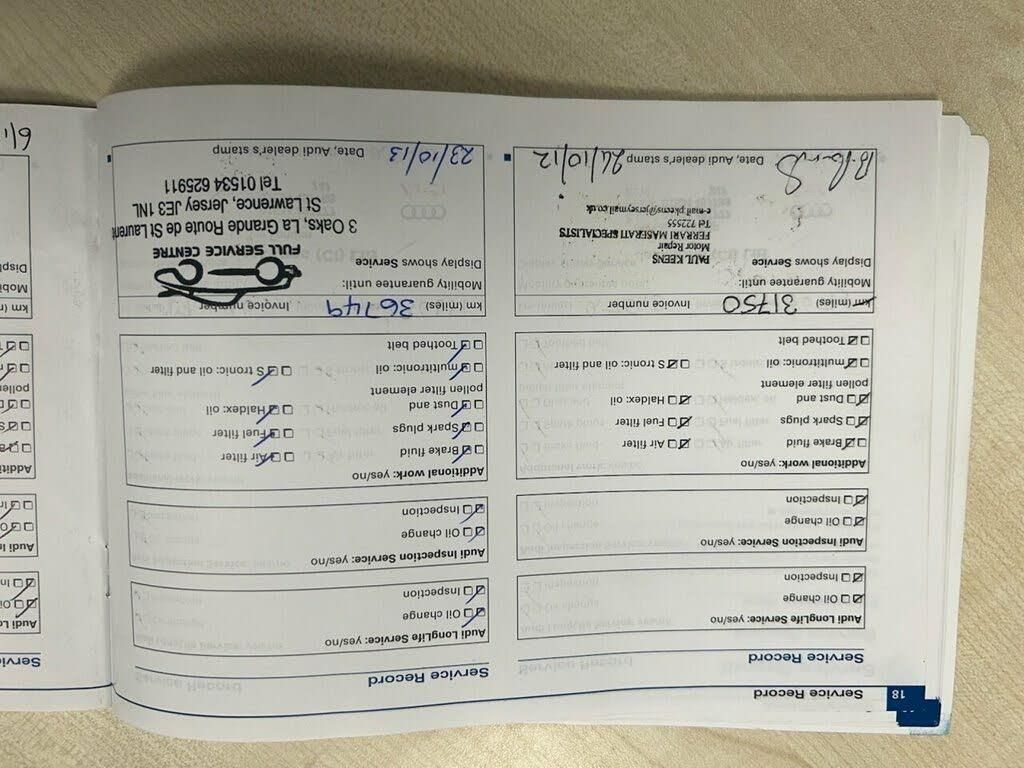 18
Service Record
Service Record
Audi LongLife Service: yes/no
Oil change
Inspection
Audi Inspection Service: yes/no
Oil change
Inspection
Additional work: yes/no
Brake fluid Air filter
Spark plugs Fuel filter
Dust and Haldex: oil
pollen filter element
multitronic: oil S tronic: oil and filter
Toothed belt
km (miles) 31750 Invoice number
Mobility guarantee until:
Display shows Service
PAUL KEENS
Motor Repair
FERRARI MASERATI SPECIALISTS
Tel 722555
e-mail pkeens@jerseymail.co.uk
Date, Audi dealer's stamp 24/10/12
Service Record
Audi LongLife Service: yes/no
Oil change
Inspection
Audi Inspection Service: yes/no
Oil change
Inspection
Additional work: yes/no
Brake fluid Air filter
Spark plugs Fuel filter
Dust and Haldex: oil
pollen filter element
multitronic: oil S tronic: oil and filter
Toothed belt
km (miles) 36749 Invoice number
Mobility guarantee until:
Display shows Service
FULL SERVICE CENTRE
3 Oaks, La Grande Route de St Laurent
St Lawrence, Jersey JE3 1NL
Tel 01534 625911
Date, Audi dealer's stamp 23/10/13
Service